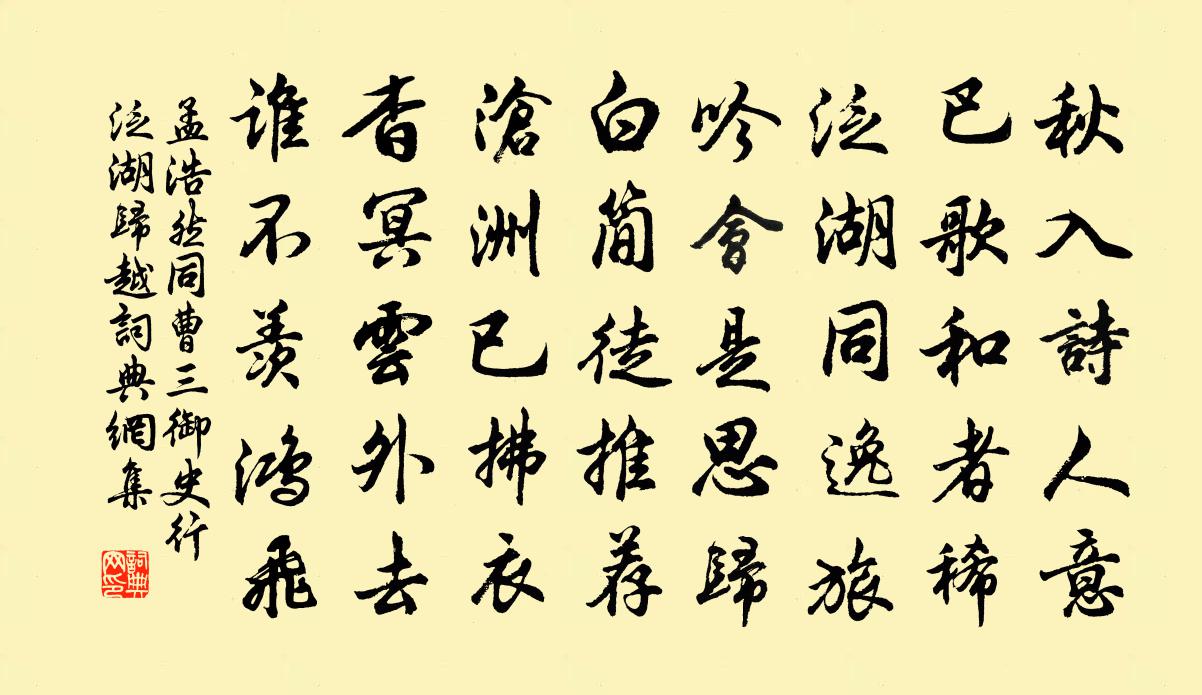 秋入詩人意
巴歌和者稀
泛湖同逸旅
吟會是思歸
白簡徒推荐
滄洲已拂衣
杳冥雲外去
誰不羨鴻飛
孟浩然同曹三御史行
泛湖歸越詞典網集
詞典网印